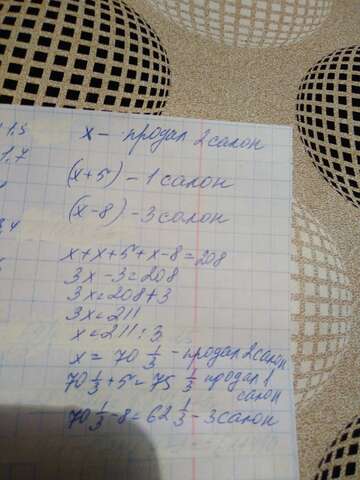 1,5
1,7
x – продал 2 салон
(x+5) – 1 салон
(x-8) – 3 салон
x+x+5+x-8=208
3x-3=208
3x=208+3
3x=211
x=211:3
x= 70 1/3 - продал 2 салон
70 1/3 +5= 75 1/3 продал 1 салон
70 1/3 -8= 62 1/3 - 3 салон